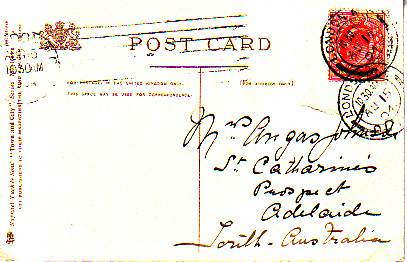 POST CARD
FOR POSTAGE IN THE UNITED KINGDOM ONLY
THIS SPACE MAY BE USED FOR CORRESPONDENCE.
(FOR ADDRESS ONLY.)
Raphael Tuck & Sons' "Town and City" Series
LONDON
10.30
AU 15
04
10.30 AM
Mrs Angas Johnson
St. Catharines
Prospect
Adelaide
South-Australia